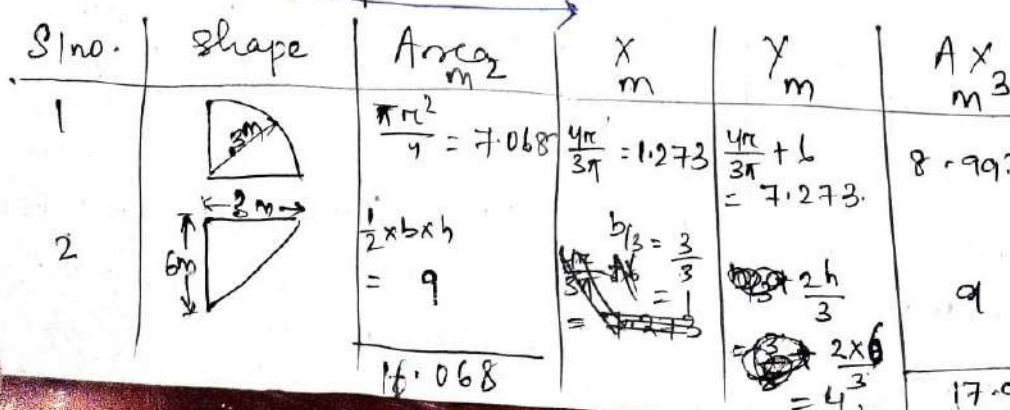 Sl no. shape Area m2 X m Y m AX m3
1 3m πr²/4 = 7.068 4r/3π = 1.273 4r/3π + 6 = 7.273. 8.99
2 3m 6m ½xbxh = 9 b/3 = 3/3 = 1 2h/3 2x6/3 = 4. 9
16.068 17.9